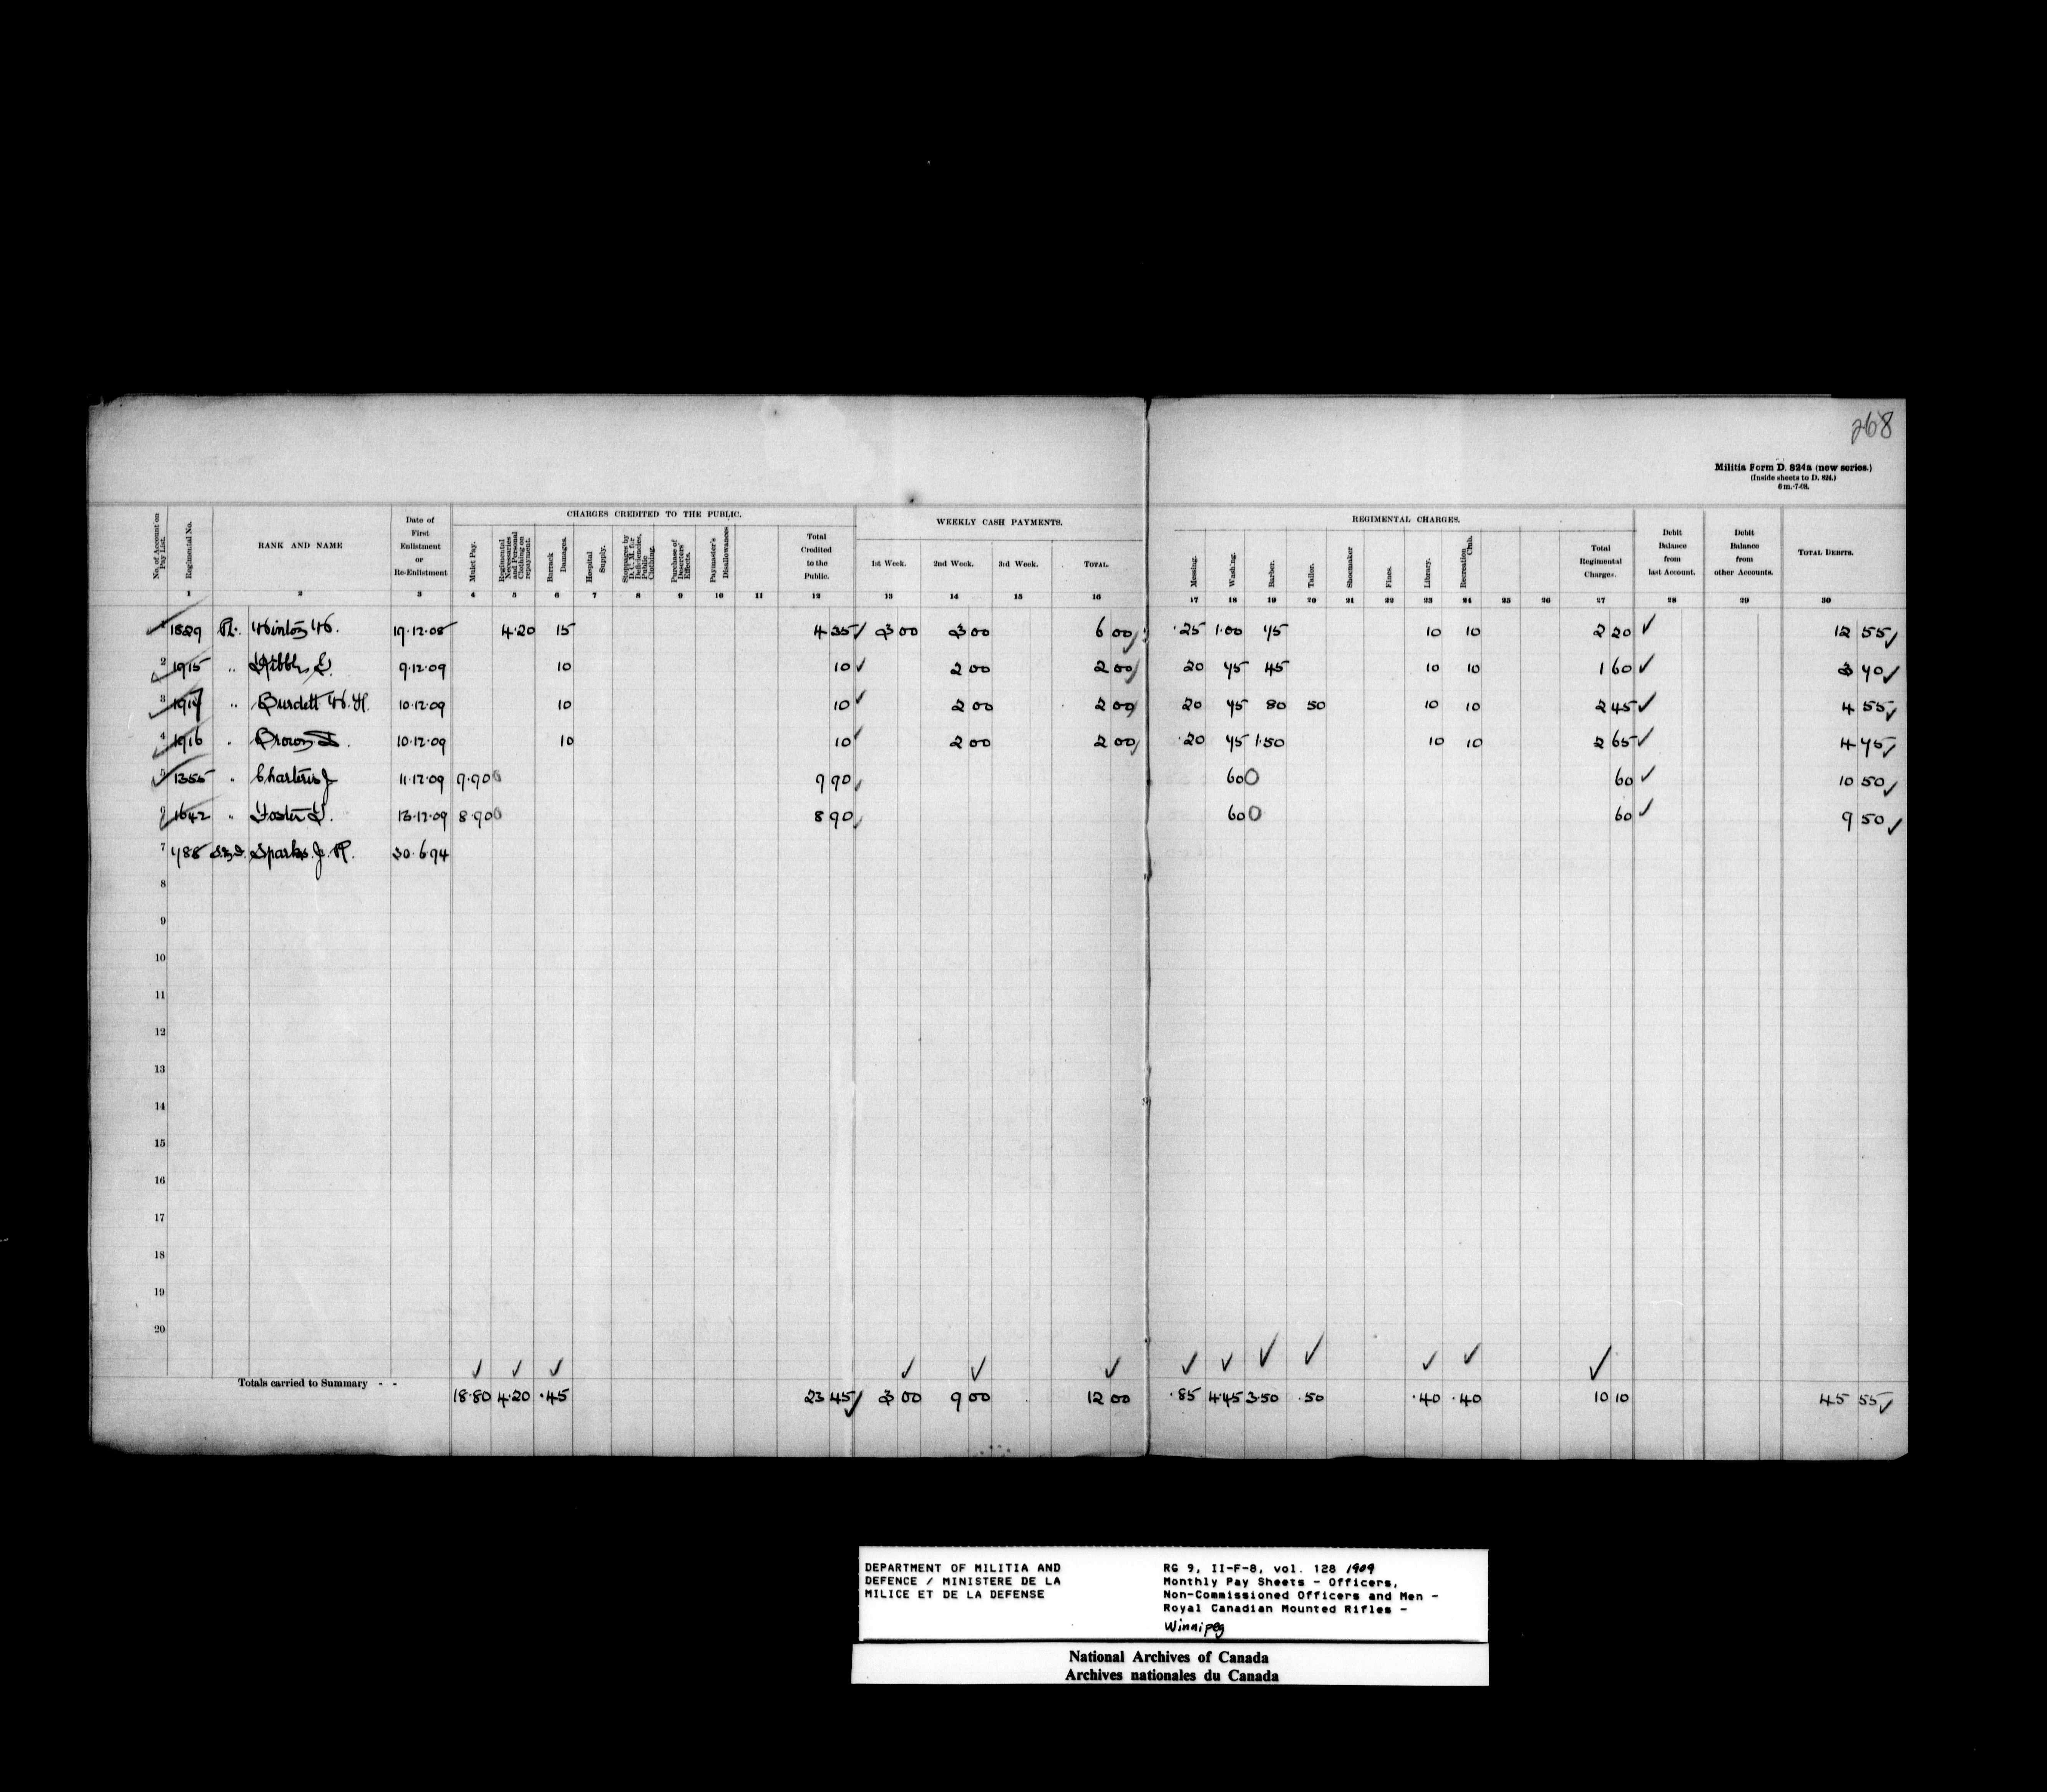 268
Militia Form D. 824a (new series.)
(Inside sheets to D. 824.)
6 m.-7-08.
CHARGES CREDITED TO THE PUBLIC.
WEEKLY CASH PAYMENTS.
REGIMENTAL CHARGES.
No. of Account on Pay List.
Regimental No.
RANK AND NAME
Date of First Enlistment or Re-Enlistment
Mulct Pay.
Regimental Necessaries and Personal Clothing on repayment.
Barrack Damages.
Hospital Supply.
Stoppages by D. C. M. for Deficiencies, Public Clothing.
Purchase of Deserters' Effects.
Paymaster's Disallowances
Total Credited to the Public.
1st Week.
2nd Week.
3rd Week.
TOTAL.
Messing.
Washing.
Barber.
Tailor.
Shoemaker
Fines.
Library.
Recreation Club.
Total Regimental Charges.
Debit Balance from last Account.
Debit Balance from other Accounts.
TOTAL DEBITS.
1 2 3 4 5 6 7 8 9 10 11 12 13 14 15 16 17 18 19 20 21 22 23 24 25 26 27 28 29 30
1 1829 Pt. W. 19.12.08 4.20 15 4 35 3 00 3 00 6 00 .25 1.00 75 10 10 2 20 12 55
2 1915 " 9.12.09 10 10 2 00 2 00 20 75 45 10 10 1 60 3 70
3 1917 " Burdett W. H. 10.12.09 10 10 2 00 2 00 20 75 80 50 10 10 2 45 4 55
4 1916 " Brown 10.12.09 10 10 2 00 2 00 .20 75 1.50 10 10 2 65 4 75
5 1355 " Charteris J 11.12.09 9.90 9 90 60 60 10 50
6 1642 " Foster 13.12.09 8.90 8 90 60 60 9 50
7 788 Sparks J. R. 30.6.94
8
9
10
11
12
13
14
15
16
17
18
19
20
Totals carried to Summary - - 18.80 4.20 .45 23 45 3 00 9 00 12 00 .85 4.45 3.50 .50 .40 .40 10 10 45 55
DEPARTMENT OF MILITIA AND
DEFENCE / MINISTERE DE LA
MILICE ET DE LA DEFENSE
RG 9, II-F-8, vol. 128 1909
Monthly Pay Sheets - Officers,
Non-Commissioned Officers and Men -
Royal Canadian Mounted Rifles -
Winnipeg
National Archives of Canada
Archives nationales du Canada